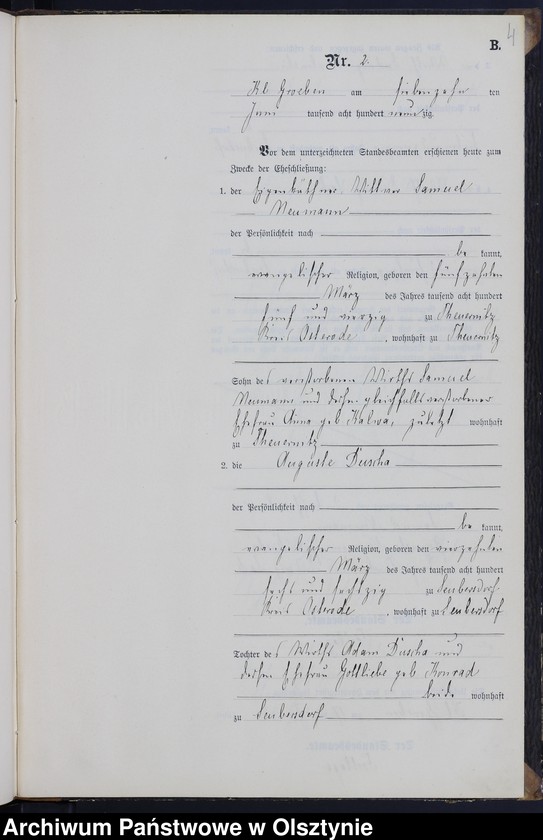 4
B.
Nr. 2.
Kl Groeben am siebenzehn ten
Juni tausend acht hundert neunzig.
Vor dem unterzeichneten Standesbeamten erschienen heute zum
Zwecke der Eheschließung:
1. der Eigenkäthner Wittwer Samuel
Neumann
der Persönlichkeit nach
be kannt,
evangelischer Religion, geboren den fünfzehnten
März des Jahres tausend acht hundert
fünf und vierzig zu Theuernitz
Kreis Osterode, wohnhaft zu Theuernitz
Sohn des verstorbenen Wirths Samuel
Neumann und dessen gleichfalls verstorbener
Ehefrau Anna geb Kalwa, zuletzt wohnhaft
zu Theuernitz
2. die Auguste Duscha
der Persönlichkeit nach
be kannt,
evangelischer Religion, geboren den vierzehnten
März des Jahres tausend acht hundert
sechs und sechszig zu Seubersdorf
Kreis Osterode, wohnhaft zu Seubersdorf
Tochter des Wirths Adam Duscha und
dessen Ehefrau Gottliebe geb Konrad
beide wohnhaft
zu Seubersdorf
Archiwum Państwowe w Olsztynie